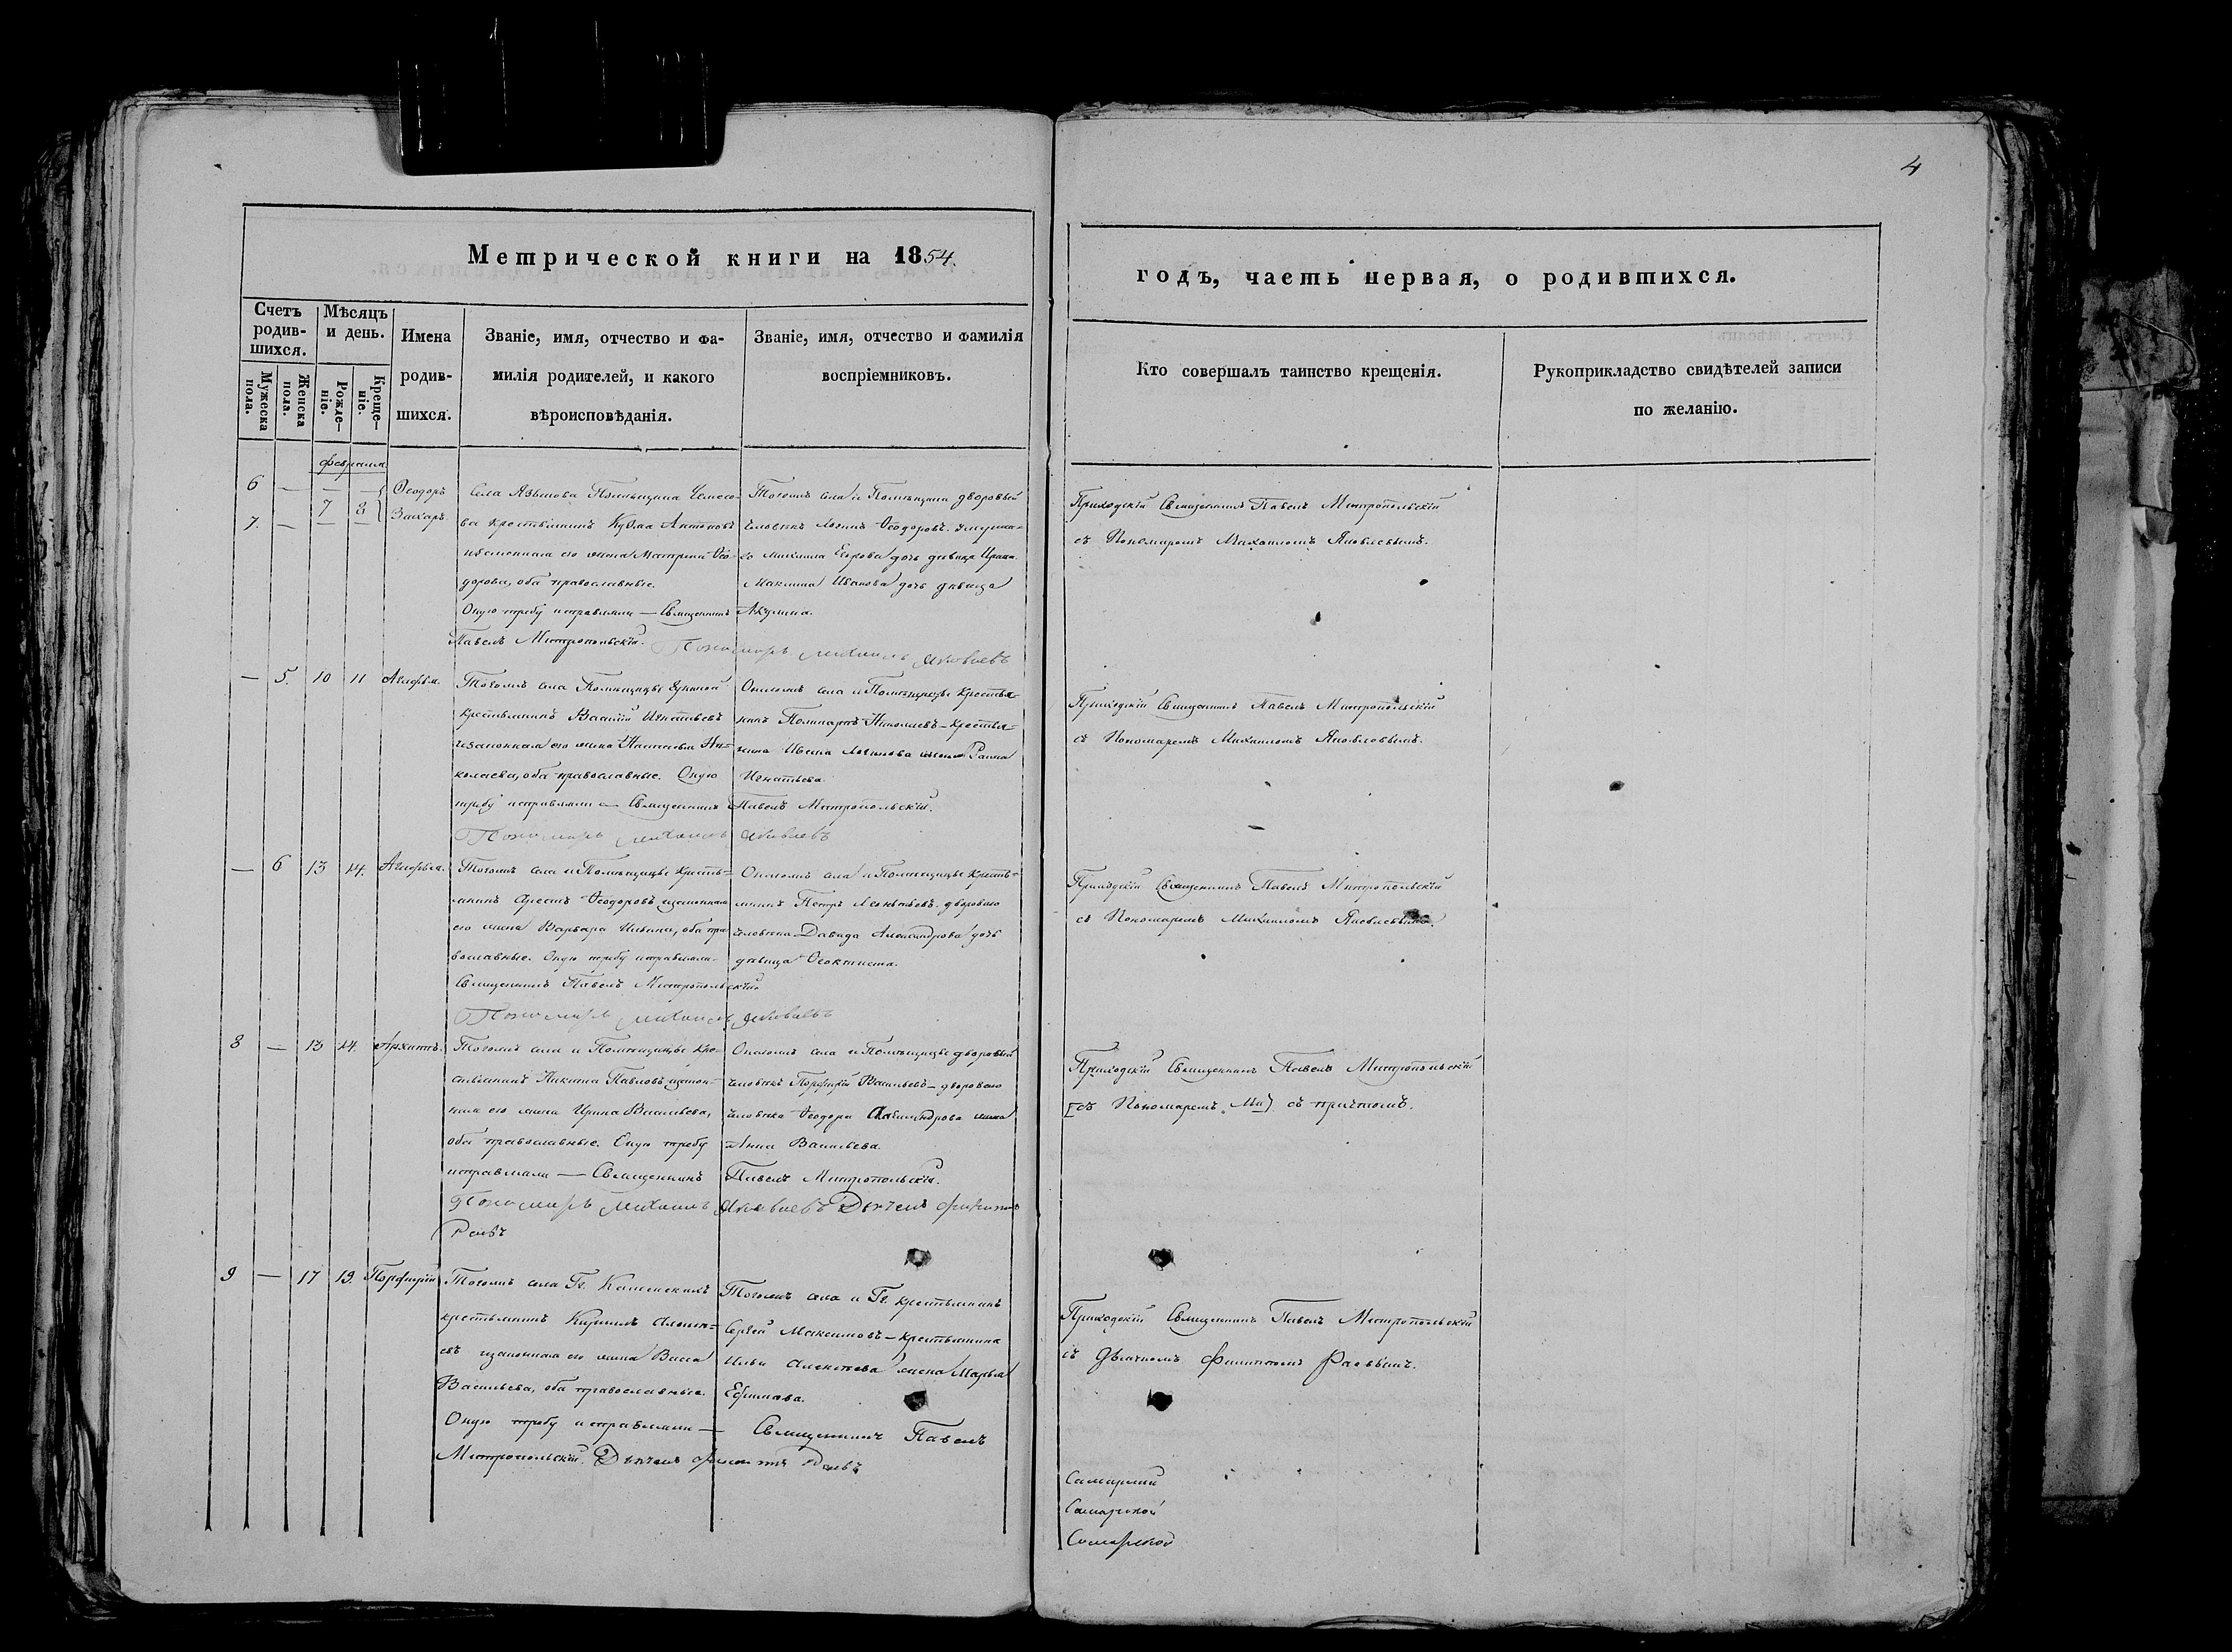 4
Метрической книги на 1854.
годъ, часть первая, о родившихся.
Счетъ родив-шихся.
Мужеска пола.
Женска пола.
Мѣсяцъ и день.
Рожде-ніе.
Креще-ніе.
Имена родив-шихся.
Званіе, имя, отчество и фа-
милія родителей, и какого
вѣроисповѣданія.
Званіе, имя, отчество и фамилія
воспріемниковъ.
Кто совершалъ таинство крещенія.
Рукоприкладство свидѣтелей записи
по желанію.
февраля
6 — 7 8 Ѳеодоръ
7. — Захаръ.
Села Языкова Помѣщика
ва крестьянинъ Кузма Антоновъ
его жена Матрена Ѳео-
дорова, оба православные.
Оную требу исправляли — Священникъ
Павелъ Митропольскій. Пономарь Михаилъ Яковлевъ
Тогожъ села и Помѣщика дворовый
человѣкъ Логинъ Ѳеодоровъ.
Егорова дочь дѣвица Ирина.
Максима Иванова дочь дѣвица
Акулина.
Приходскій Священникъ Павелъ Митропольскій
съ Пономаремъ Михаиломъ Яковлевымъ.
— 5. 10 11 Агафья.
Тогожъ села Помѣщицы
крестьянинъ Василій Игнатьевъ
изаконная его жена Наталья Ни-
колаева, оба православные. Оную
требу исправляли — Священникъ Павелъ Митропольскій.
Пономарь Михаилъ Яковлевъ
Оногожъ села и Помѣщицы крестья-
нинъ Поликарпъ Николаевъ — крестья-
нина Ивана Логинова жена
Игнатьева
Приходскій Священникъ Павелъ Митропольскій
съ Пономаремъ Михаиломъ Яковлевымъ.
— 6 13 14. Агафья.
Тогожъ села и Помѣщицы кресть-
янинъ Орестъ Ѳеодоровъ изаконная
его жена Варвара Ильина, оба пра-
вославные. Оную требу исправляли —
Священникъ Павелъ Митропольскій.
Пономарь Михаилъ Яковлевъ
Оногожъ села и Помѣщицы кресть-
янинъ Петръ Леонтьевъ. дворового
человѣка Давида Александрова дочь
дѣвица Ѳеоктиста.
Приходскій Священникъ Павелъ Митропольскій
съ Пономаремъ Михаиломъ Яковлевымъ.
8 — 13 14. Архипъ.
Тогожъ села и Помѣщицы кре-
стьянинъ Никита Павловъ изакон-
ная его жена Ирина Васильева,
оба православные. Оную требу
исправляли — Священникъ Павелъ Митропольскій.
Пономарь Михаилъ Яковлевъ Дьячекъ Филиппъ
Раевъ
Оногожъ села и Помѣщицы дворовый
человѣкъ Порфирій Васильевъ — дворового
человѣка Ѳеодора Александрова жена
Анна Васильева.
Приходскій Священникъ Павелъ Митропольскій
[съ Пономаремъ Ми) съ причтомъ.
9 — 17 19. Порфирій
Тогожъ села Гг. Каменскихъ
крестьянинъ Кириллъ
евъ изаконная его жена Васса
Васильева, оба православные.
Оную требу исправляли — Священникъ Павелъ
Митропольскій. Дьячекъ Филиппъ Раевъ
Тогожъ села и Гг. крестьянинъ
Сергей Максимовъ — крестьянина
Ильи Алексѣева жена Марья
Ефимова.
Приходскій Священникъ Павелъ Митропольскій
съ Дьячкомъ Филиппомъ Раевымъ.
Самарской
Самарской